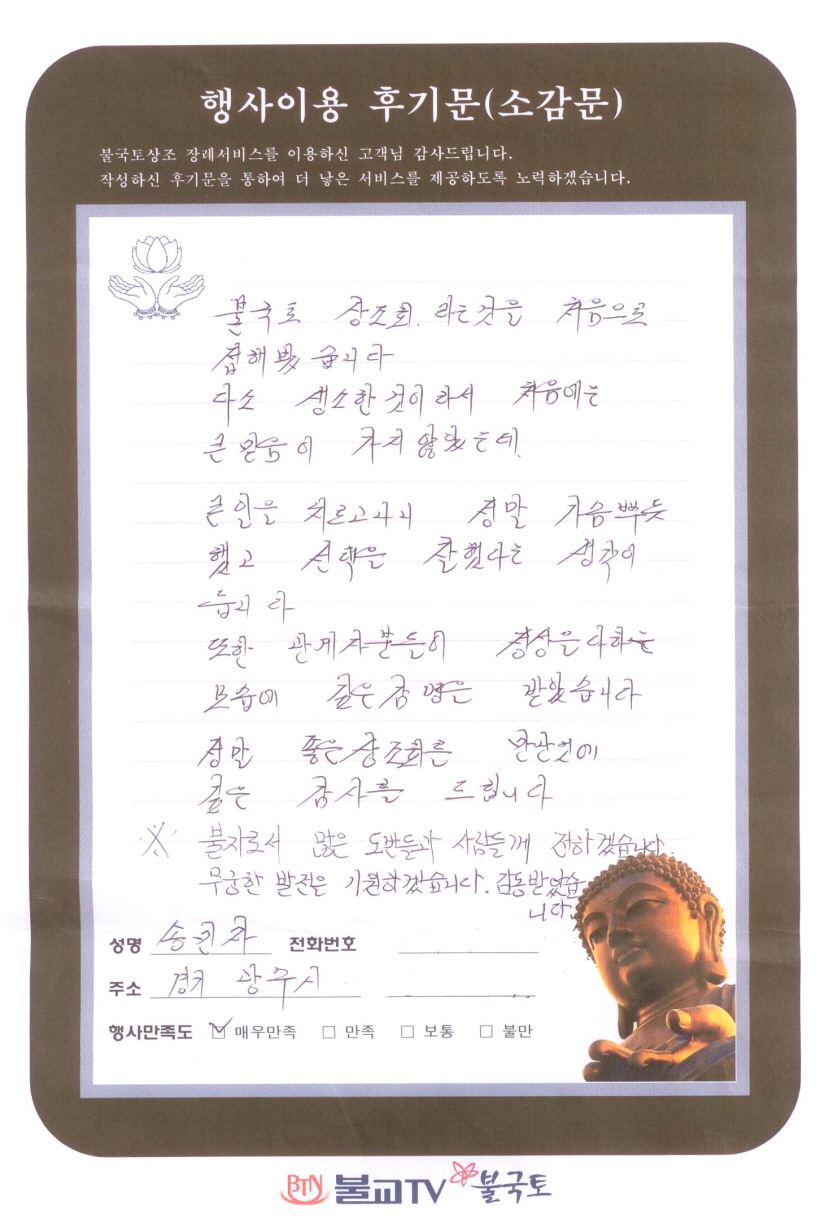 행사이용 후기문(소감문)
불국토상조 장례서비스를 이용하신 고객님 감사드립니다.
작성하신 후기문을 통하여 더 낳은 서비스를 제공하도록 노력하겠습니다.
불국토 상조회. 라는것을 처음으로
접해봤습니다
다소 생소한 것이라서 처음에는
큰 믿음이 가지 않았는데.
큰일을 치르고나니 정말 가슴뿌듯
했고 선택을 잘했다는 생각이
듭니다
또한 관계자분들이 정성을다하는
모습에 깊은감명을 받았습니다
정말 좋은상조회를 만난것에
깊은 감사를 드립니다
※ 불자로서 많은 도반들과 사람들께 전하겠습니다.
무궁한 발전을 기원하겠습니다. 감동받았습
니다.
성명 송 자 전화번호
주소 경기 광주시
행사만족도 ☑ 매우만족 □ 만족 □ 보통 □ 불만
BTN 불교TV 불국토